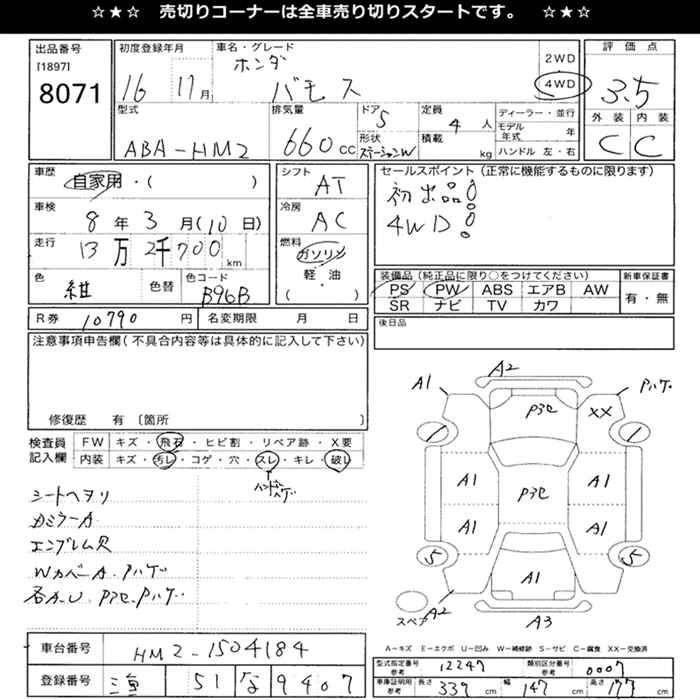 ☆★☆ 売切りコーナーは全車売り切りスタートです。 ☆★☆
出品番号 初度登録年月 車名・グレード 評価点
[1897] ホンダ 2WD
8071 16 11月 バモス 4WD 3.5
型式 排気量 ドア 5 定員 4人 ディーラー・並行 外装 内装
形状 積載 モデル年式 年
ABA-HM2 660cc ステーションW kg ハンドル 左・右 C C
車歴 シフト セールスポイント(正常に機能するものに限ります)
自家用・( ) AT 初出品!
車検 冷房 4WD!
8年3月(10日) AC
走行 燃料
13万2千700km ガソリン
軽・油
( )
色 色替 色コード 装備品(純正品に限り○をつけてください) 新車保証書
紺 B96B PS PW ABS エアB AW 有・無
SR ナビ TV カワ
R券 10790円 名変期限 月 日 後日品
注意事項申告欄(不具合内容等は具体的に記入して下さい)
修復歴 有〔箇所 〕
検査員記入欄 FW キズ・飛石・ヒビ割・リペア跡・X要
内装 キズ・汚レ・コゲ・穴・スレ・キレ・破レ
シートヘタリ
エンブレム欠
WカバーA.Pハゲ
各A.U.P3セ.Pハゲ
A1 A2 Pハゲ
P3セ XX
1 1
A1 P3セ A1
A1 A1
5 5
A1
スペア A2 A3
A-キズ E-エクボ U-凹み W-補修跡 S-サビ C-腐食 XX-交換済
車台番号 HM2-1504184
型式指定番号 参考 12247 類別区分番号 参考 0007
登録番号 51 な 9407
車庫証明用 参考 長さ 339cm 幅 147cm 高さ cm